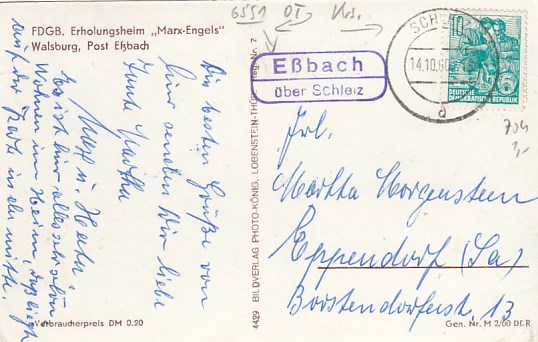 FDGB. Erholungsheim „Marx-Engels"
Walsburg, Post Eßbach
Die besten Grüße von
hier senden Dir liebe
Tante Martha
Max u. Herta
Es ist hier alles schön
Wohnen im Heim,
auf der Karte in der mitte.
Verbraucherpreis DM 0.20
4429 BILDVERLAG PHOTO-KÖNIG, LOBENSTEIN-THÜR. Reg. Nr. 7
6551 OT
Eßbach
über Schleiz
SCHLEIZ
14.10.60
d
10
DEUTSCHE
DEMOKRATISCHE REPUBLIK
704
1,-
Frl.
Martha Morgenstern
Eppendorf (Sa)
Borstendorferst. 13
Gen. Nr. M 2/60 DDR